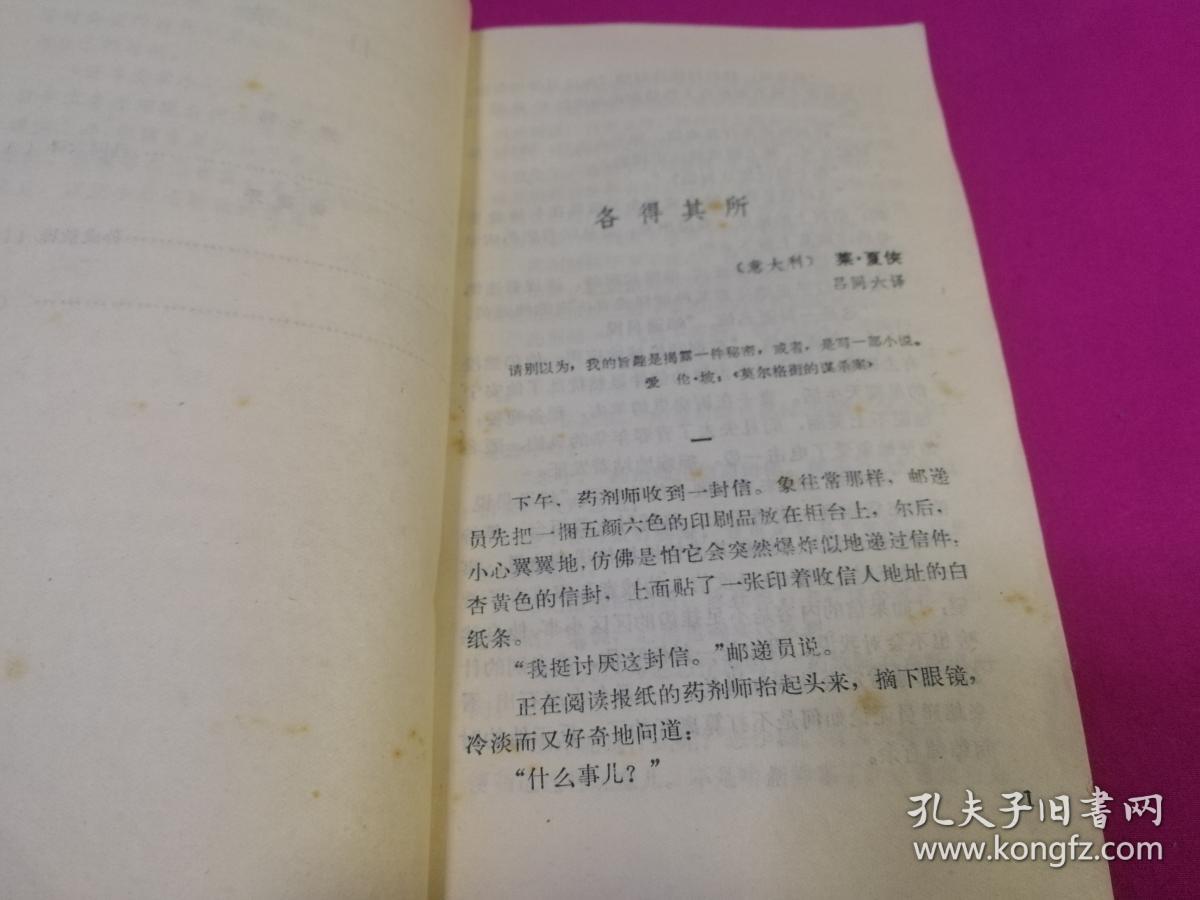 各得其所
（意大利） 莱·夏侠
吕同六译
请别以为，我的旨趣是揭露一件秘密，或者，是写一部小说。
爱 伦·坡：《莫尔格街的谋杀案》
一
下午，药剂师收到一封信。象往常那样，邮递
员先把一捆五颜六色的印刷品放在柜台上，尔后，
小心翼翼地，仿佛是怕它会突然爆炸似地递过信件：
杏黄色的信封，上面贴了一张印着收信人地址的白
纸条。
“我挺讨厌这封信。”邮递员说。
正在阅读报纸的药剂师抬起头来，摘下眼镜，
冷淡而又好奇地问道：
“什么事儿？”
1
孔夫子旧书网
www.kongfz.com